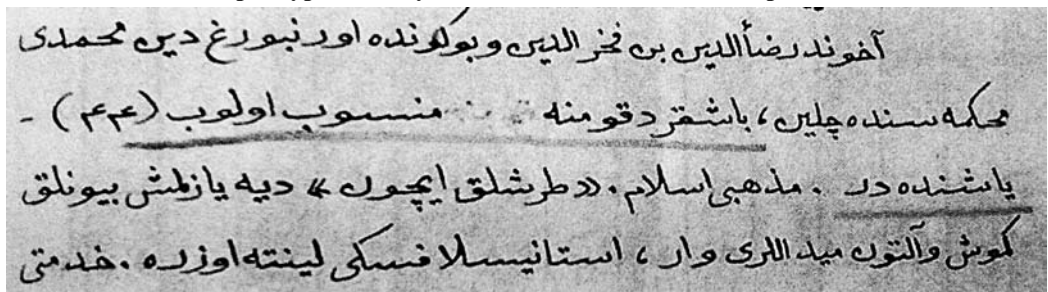 آخوند رضأالدين بن فخر الدين و بوكونده اورنبورغ دين محمدى
محكمه سنده چلين، باشقرد قومنه منسوب اولوب (۴۴) -
ياشنده در . مذهبى اسلام. «طرشلق ايچون» ديه يازلمش بيونلق
كموش وآلتون ميداللرى وار، استانيسلافسكى لينته اوزره. خدمتى